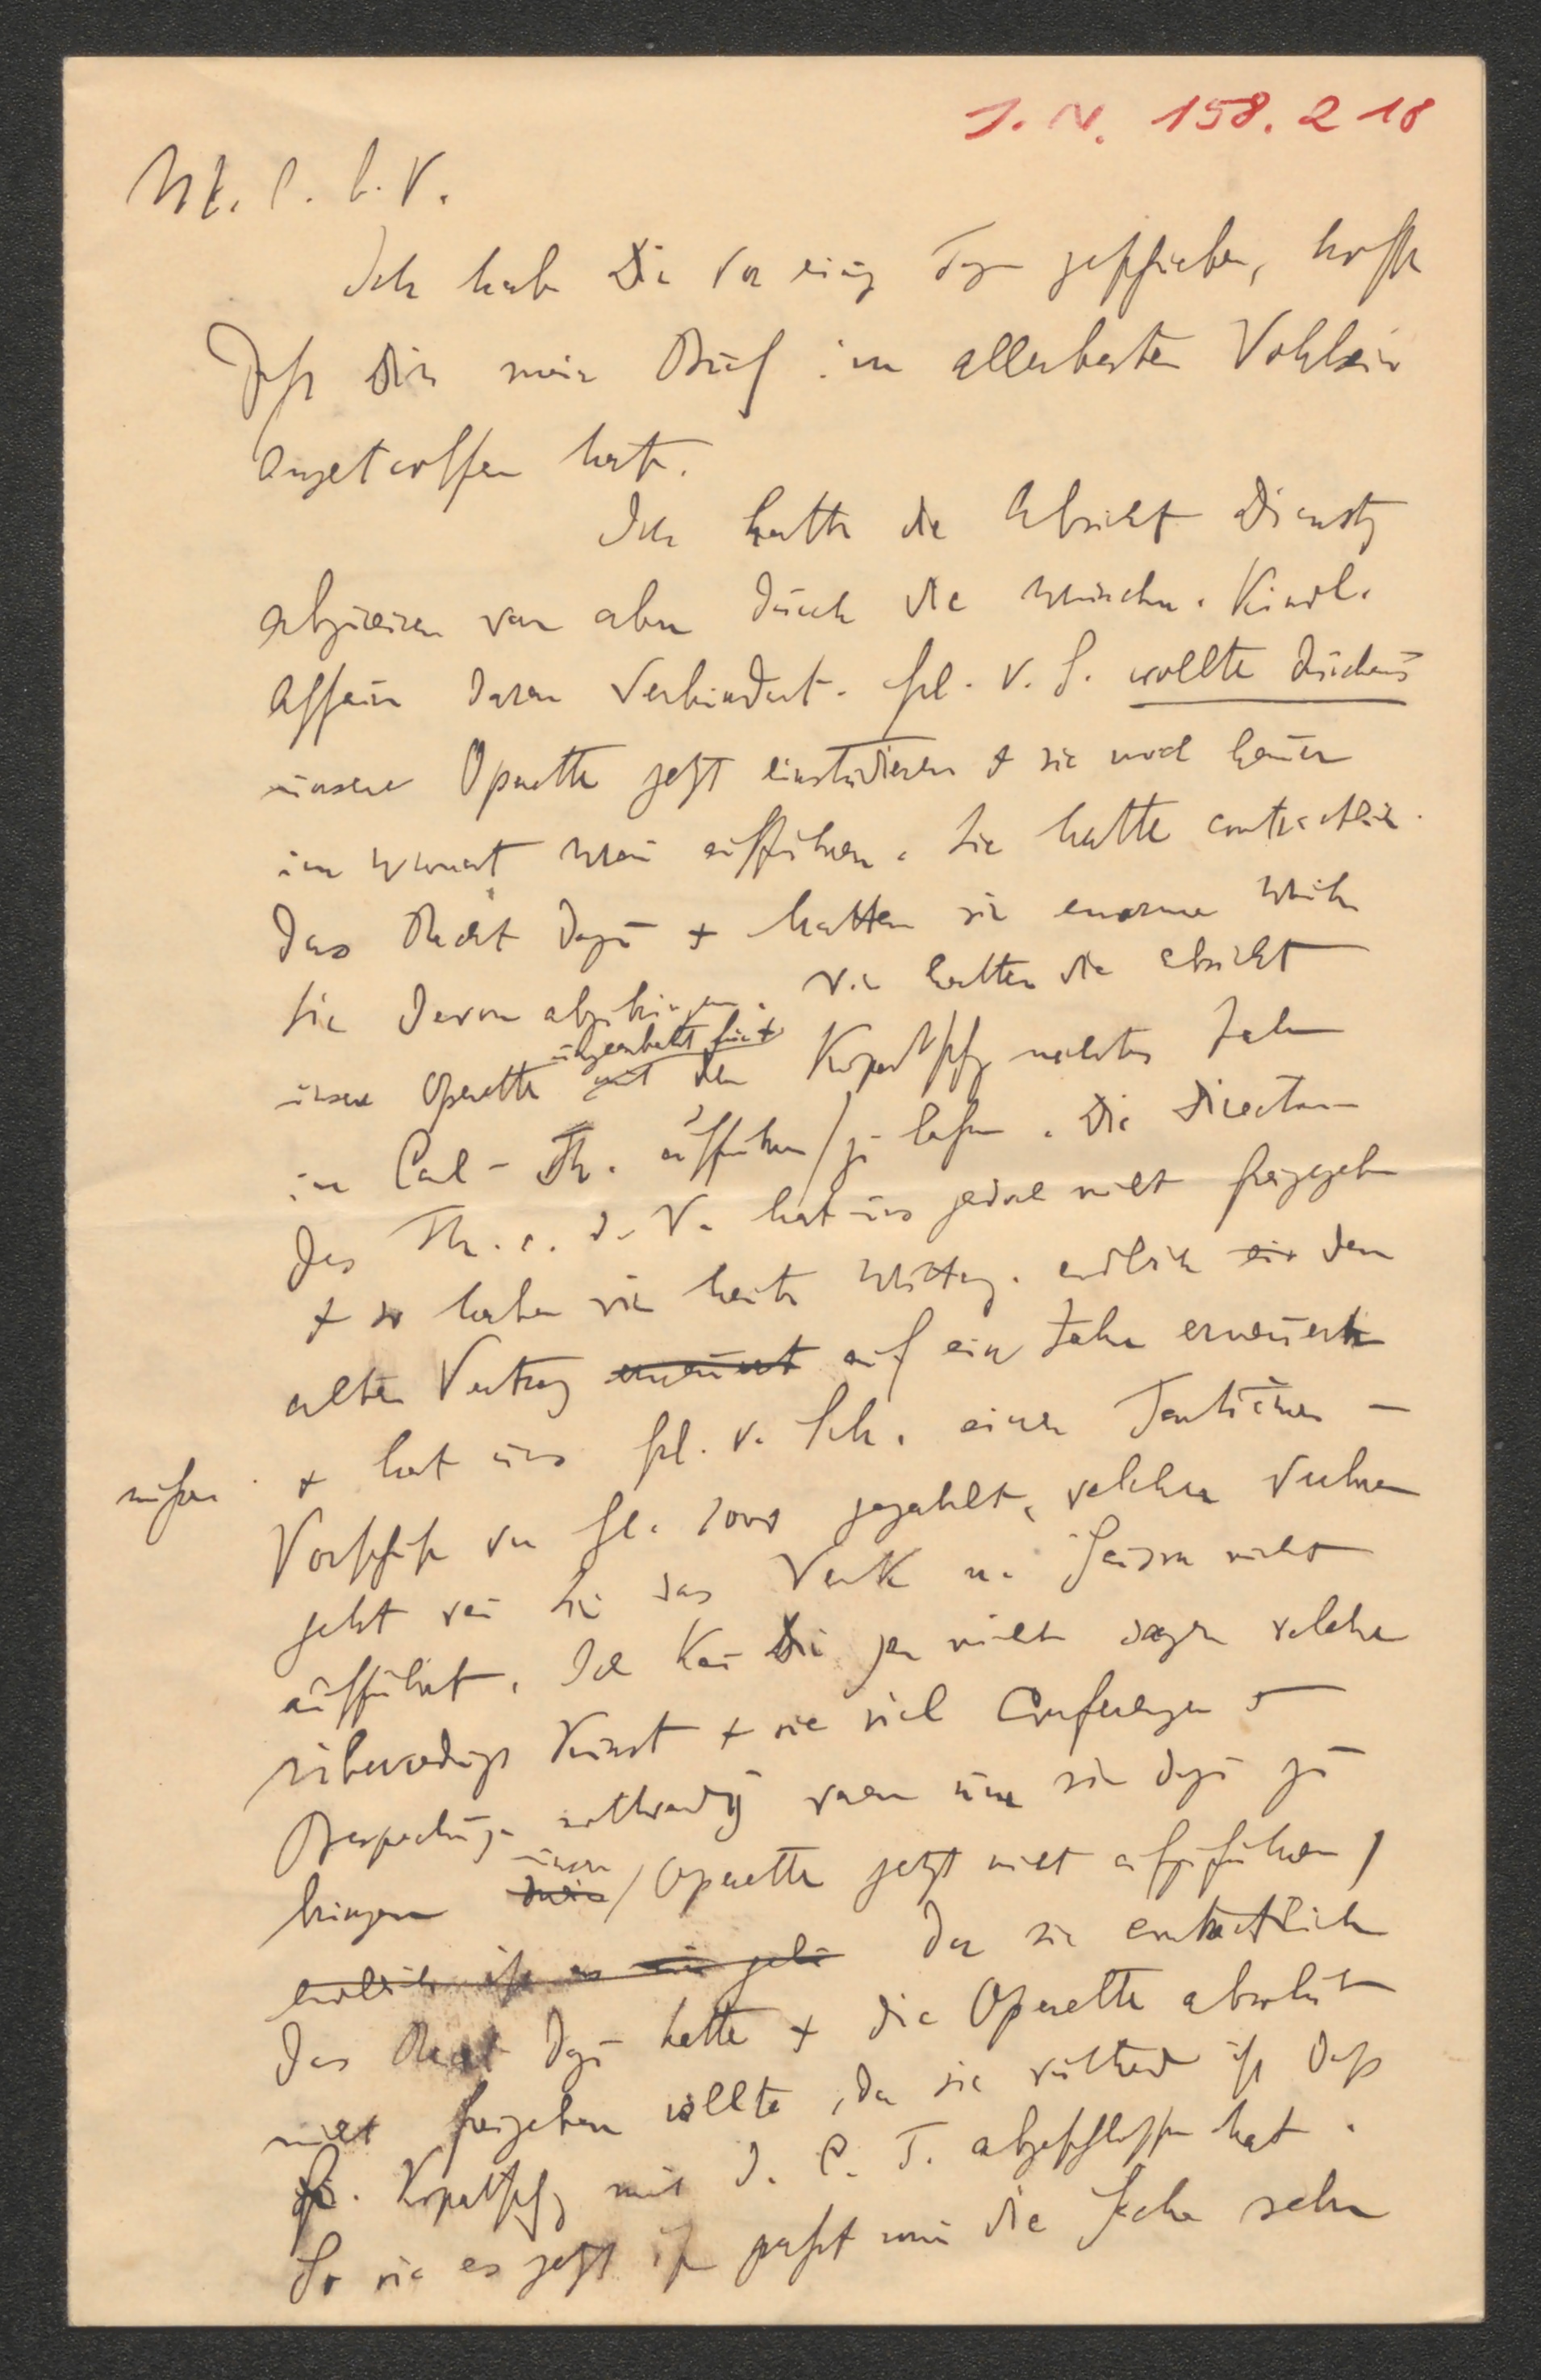 I. N. 158.218
M. l. l. V.
Ich habe Dir vor einig Tagen geschrieben, hoffe
daß Dir mein Brief im allerbesten Wohlsein
angetroffen hat.
Ich hatte die Absicht Dienstg
abzureisen war aber durch die
Affaire daran verhindert. Frl. v. S. wollte durchaus
unsere Operette jetzt einstudieren + sie noch heuer
im Monat Mai aufführen. Sie hatte contractlich
das Recht dazu + hatten wir enorme Mühe
sie davon abzubringen. Wir hatten die Absicht
unsere Operette mit der Kopacsy nächstes Jahr
im Carl-Th. aufführen zu laßen. Die Direction
des Th. a. d. W. hat uns jedoch nicht freigegeben
+ so haben wir heute Mittag endlich den
alten Vertrag erneuert auf ein Jahr erneuert
müßen + hat uns Frl. v. Sch. einen Tantiemen-
Vorschuß von fl. gezahlt, welcher verloren
geht wenn sie das Werk n. Saison nicht
aufführt. Ich kann Dir gar nicht sagen welche
Kunst + wie viel Conferenzen +
Besprechungen nothwendig waren um sie dazu zu
bringen unsere Operette jetzt nicht aufzuführen,
endlich ist es da sie contractlich
das Recht dazu hatte + die Operette absolut
nicht freigeben wollte, da sie wüthend ist daß
Kopacsy mit d. C. T. abgeschlossen hat.
So wie es jetzt ist paßt mir die Sache sehr